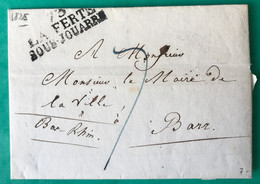 1825
73
LA FERTÉ
SOUS-JOUARRE
A Monsieur
Monsieur le Maire de
la Ville
à
Bas Rhin
Barr
7.